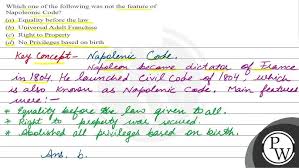 Which one of the following was not the feature of
Napoleonic Code?
(a) Equality before the law
(b) Universal Adult Franchise
(c) Right to Property
(d) No Privileges based on birth
Key Concept - Napolenic Code.
Napoleon became dictator of France
in 1804. He launched Civil Code of 1804 which
is also known as Napolenic Code. Main features
were :-
* Equality before the law given to all.
* Right to property was secured.
* Abolished all privileges based on birth.
Ans. b.
P
W